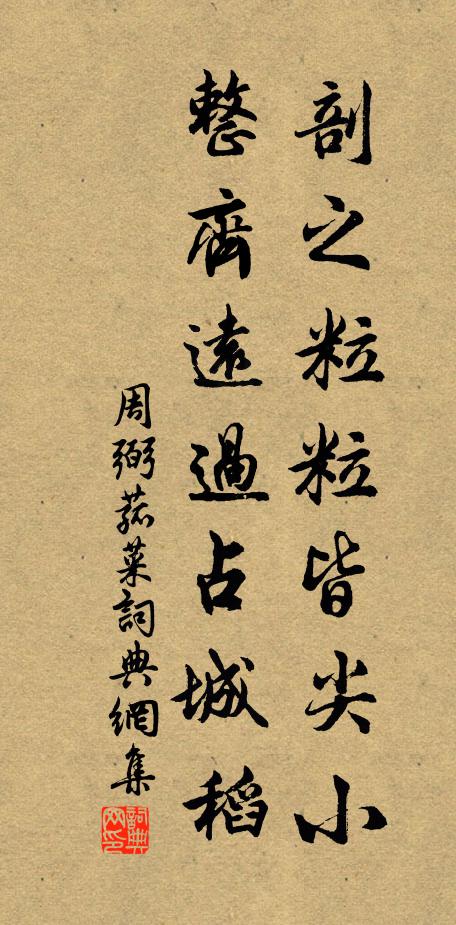 剖之粒粒皆尖小
整齊遠過占城稻
周弼菰菜詞典網集
詞典網印